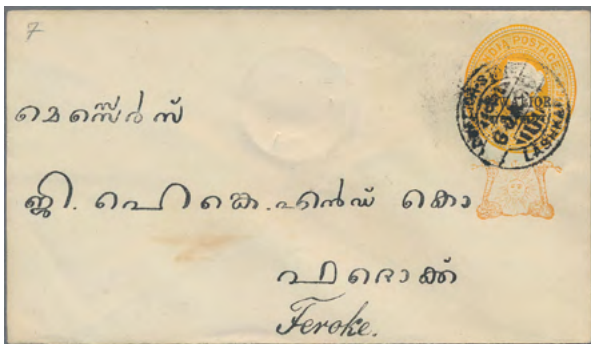 7
INDIA POSTAGE
GWALIOR
LASHKAR
മെസ്സെർസ്
ജി. എൻഡ് കൊ
ഫറൊക്ക്
Feroke.